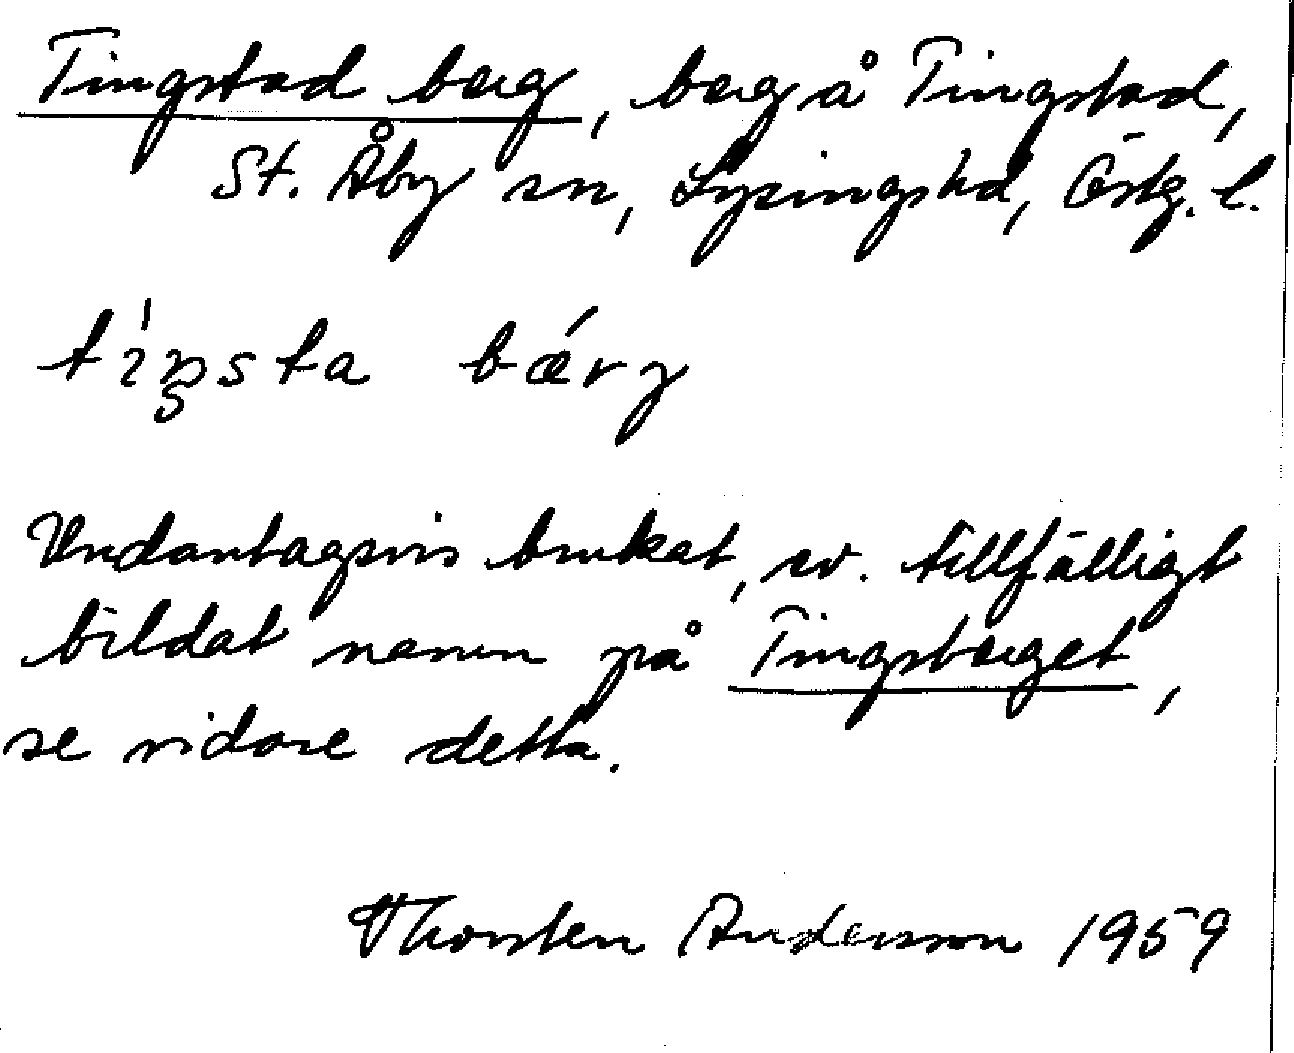 Tingstad berg, berg å Tingstad,
St. Åby sn, Lysings hd, Östg. l.
tiŋsta bærg
Undantagsvis brukat, ev. tillfälligt
bildat namn på Tingsberget,
se vidare detta.
Thorsten Andersson 1959